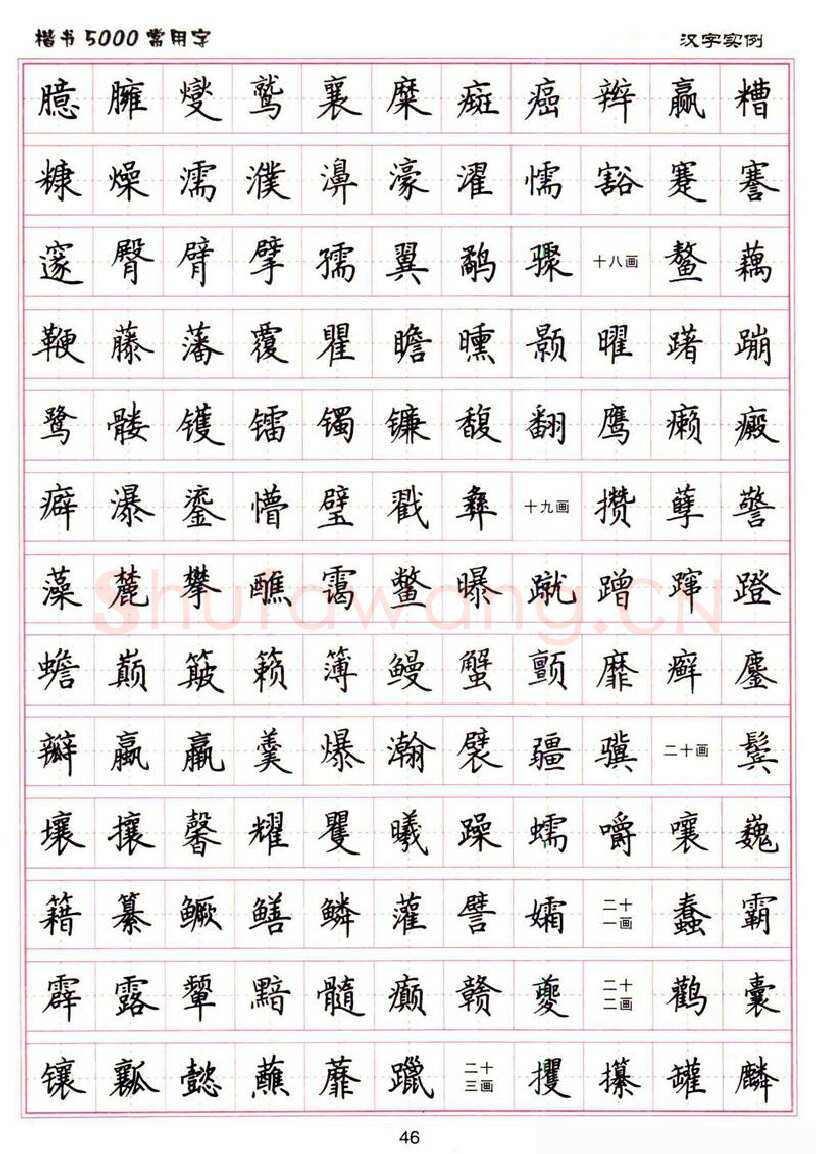 楷书5000常用字 汉字实例
臆 臃 燮 鹫 襄 糜 癍 癌 辫 赢 糟
糠 燥 濡 濮 濞 濠 濯 懦 豁 蹇 謇
邃 臀 臂 擘 孺 翼 鹬 骤 十八画 鳌 藕
鞭 藤 藩 覆 瞿 瞻 曛 颢 曜 躇 蹦
鹭 髅 镬 镭 镯 镰 馥 翻 鹰 癞 癜
癖 瀑 鎏 懵 璧 戳 彝 十九画 攒 孽 警
藻 麓 攀 醮 霭 鳖 曝 蹴 蹭 蹿 蹬
蟾 巅 簸 籁 簿 鳗 蟹 颤 靡 癣 鏖
瓣 嬴 羸 羹 爆 瀚 襞 疆 骥 二十画 鬓
壤 攘 馨 耀 矍 曦 躁 蠕 嚼 嚷 巍
籍 纂 鳜 鳝 鳞 灌 譬 孀 二十一画 蠢 霸
霹 露 颦 黯 髓 癫 赣 夔 二十二画 鹳 囊
镶 瓤 懿 蘸 蘼 躐 二十三画 攫 攥 罐 麟
Shufawang.CN
46